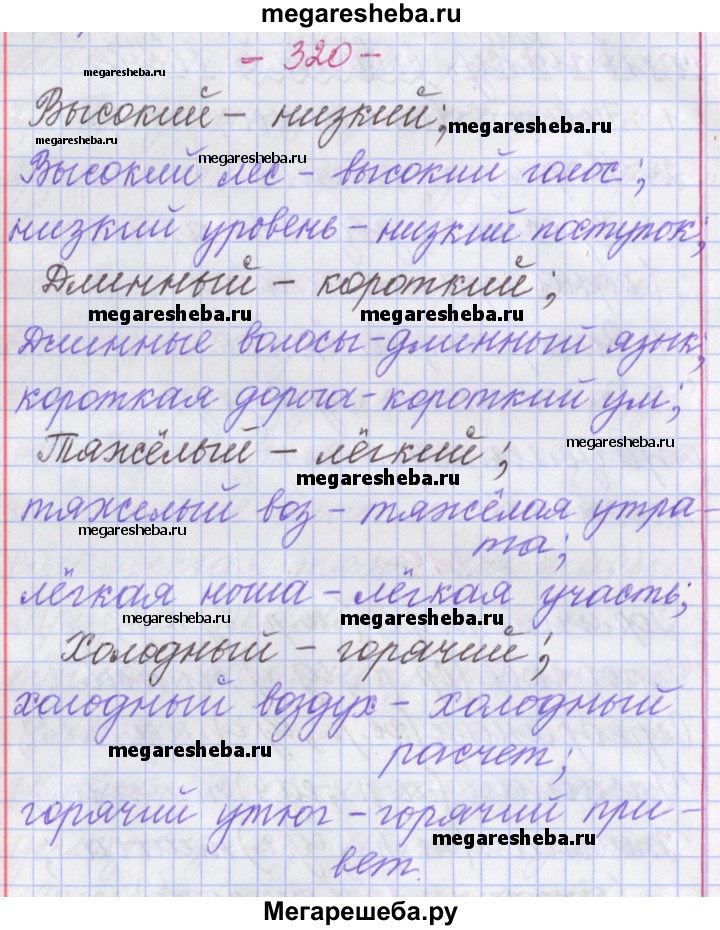 megaresheba.ru
- 320 -
megaresheba.ru
Высокий - низкий;
megaresheba.ru
megaresheba.ru
megaresheba.ru
Высокий лес - высокий голос;
низкий уровень - низкий поступок;
Длинный - короткий;
megaresheba.ru
megaresheba.ru
Длинные волосы - длинный язык;
короткая дорога - короткий ум;
Тяжёлый - лёгкий;
megaresheba.ru
megaresheba.ru
тяжелый воз - тяжёлая утра-
megaresheba.ru
та;
лёгкая ноша - лёгкая участь;
megaresheba.ru
megaresheba.ru
Холодный - горячий;
холодный воздух - холодный
megaresheba.ru
расчет;
горячий утюг - горячий при-
megaresheba.ru
вет.
Мегарешеба.ру